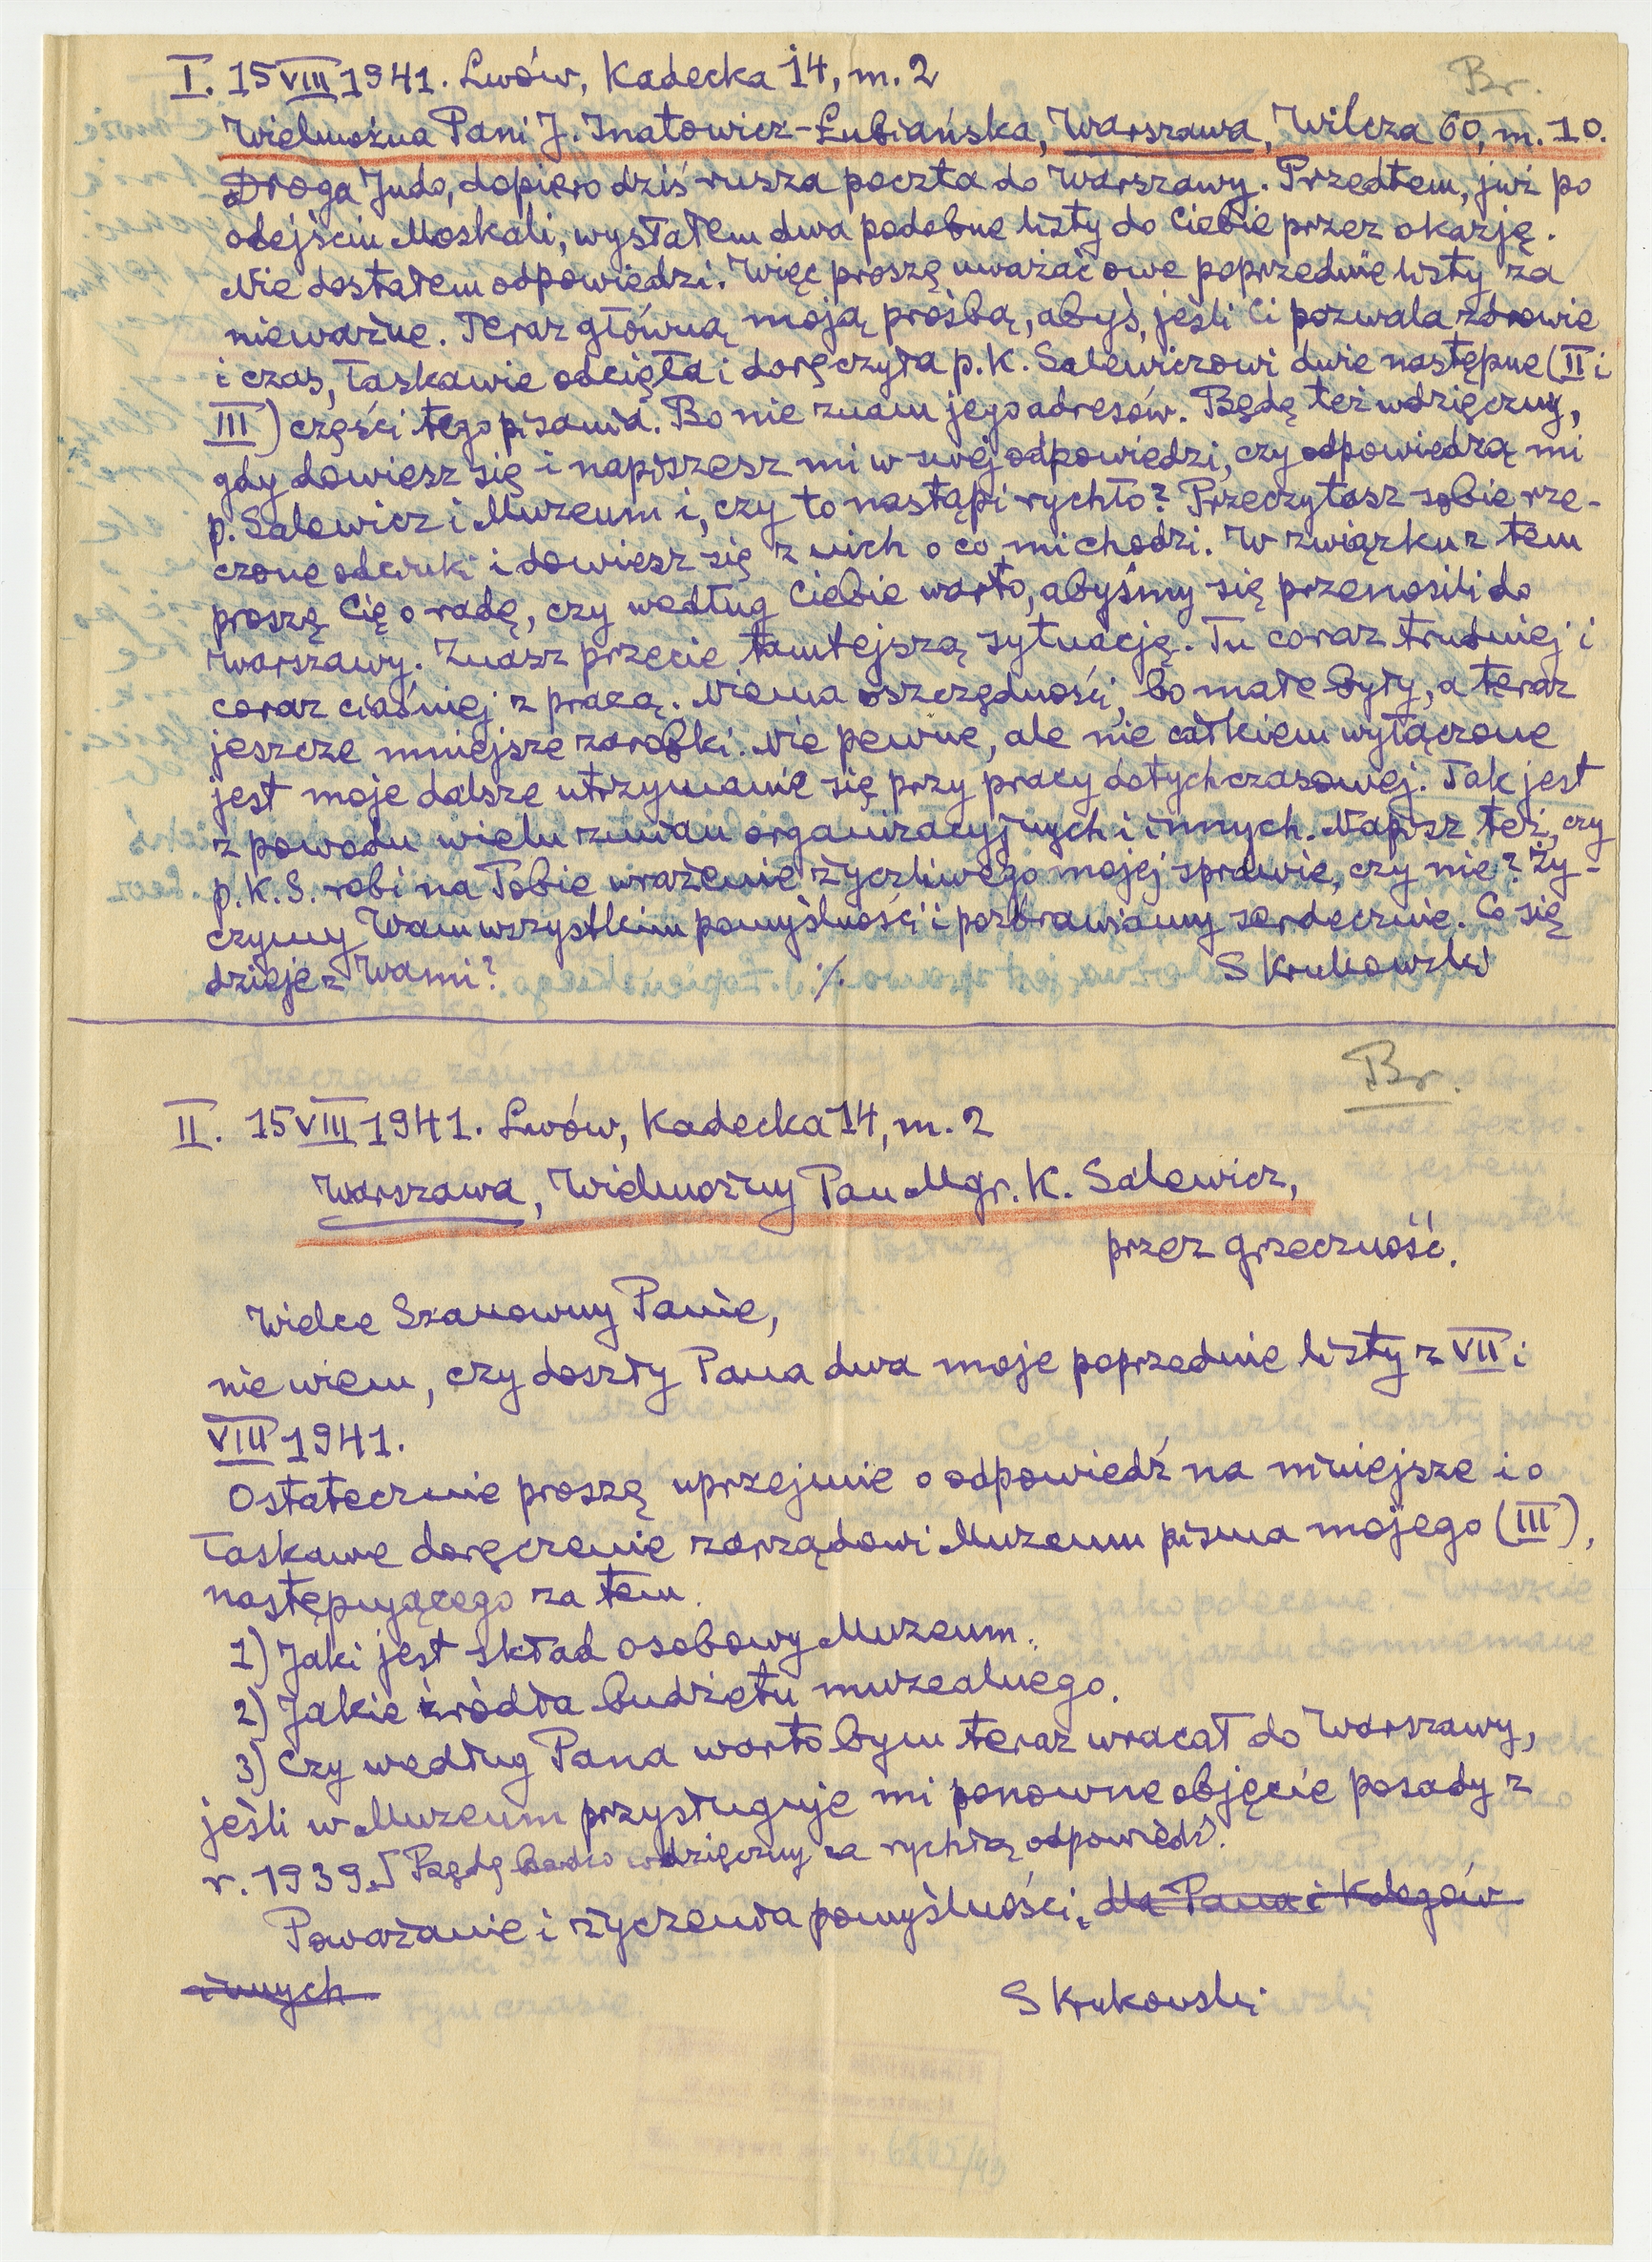 Br.
I. 15 VIII 1941. Lwów, Kadecka 14, m. 2
Wielmożna Pani J. Inatowicz-Łubiańska, Warszawa, Wilcza 60, m. 10.
Droga Judo, dopiero dziś rusza poczta do Warszawy. Przedtem, już po
odejściu Moskali, wysłałem dwa podobne listy do Ciebie przez okazję.
Nie dostałem odpowiedzi. Więc proszę uważać owe poprzednie listy za
nieważne. Teraz główną moją prośbą, abyś, jeśli Ci pozwala zdrowie
i czas, łaskawie odcięła i doręczyła p. K. Salewiczowi dwie następne (II i
III) części tego pisania. Bo nie znam jego adresów. Będę też wdzięczny,
gdy dowiesz się i napiszesz mi w swej odpowiedzi, czy odpowiedzą mi
p. Salewicz i Muzeum i, czy to nastąpi rychło? Przeczytasz sobie rze-
czone odcinki i dowiesz się z nich o co mi chodzi. W związku z tem
proszę Cię o radę, czy według Ciebie warto, abyśmy się przenosili do
Warszawy. Znasz przecie tamtejszą sytuację. Tu coraz trudniej i
coraz ciaśniej z pracą. Niema oszczędności, bo małe były, a teraz
jeszcze mniejsze zarobki. Nie pewne, ale nie całkiem wyłączone
jest moje dalsze utrzymanie się przy pracy dotychczasowej. Tak jest
z powodu wielu zmian organizacyjnych i innych. Napisz też, czy
p. K. S. robi na Tobie wrażenie życzliwego mojej sprawie, czy nie? Ży-
czymy Wam wszystkim pomyślności i pozdrawiamy serdecznie. Co się
dzieje z Wami? ./. S Krukowski
Br.
II. 15 VIII 1941. Lwów, Kadecka 14, m. 2
Warszawa, Wielmożny Pan Mgr. K. Salewicz,
przez grzeczność.
Wielce Szanowny Panie,
nie wiem, czy doszły Pana dwa moje poprzednie listy z VII i
VIII 1941.
Ostatecznie proszę uprzejmie o odpowiedź na niniejsze i o
łaskawe doręczenie zarządowi Muzeum pisma mojego (III),
następującego za tem.
1) Jaki jest skład osobowy Muzeum.
2) Jakie źródła budżetu muzealnego.
3) Czy według Pana warto bym teraz wracał do Warszawy,
jeśli w Muzeum przysługuje mi ponowne objęcie posady z
r. 1939. Będę bardzo wdzięczny za rychłą odpowiedź.
Poważanie i życzenia pomyślności, dla Pana i Kolegów
innych
S Krukowski